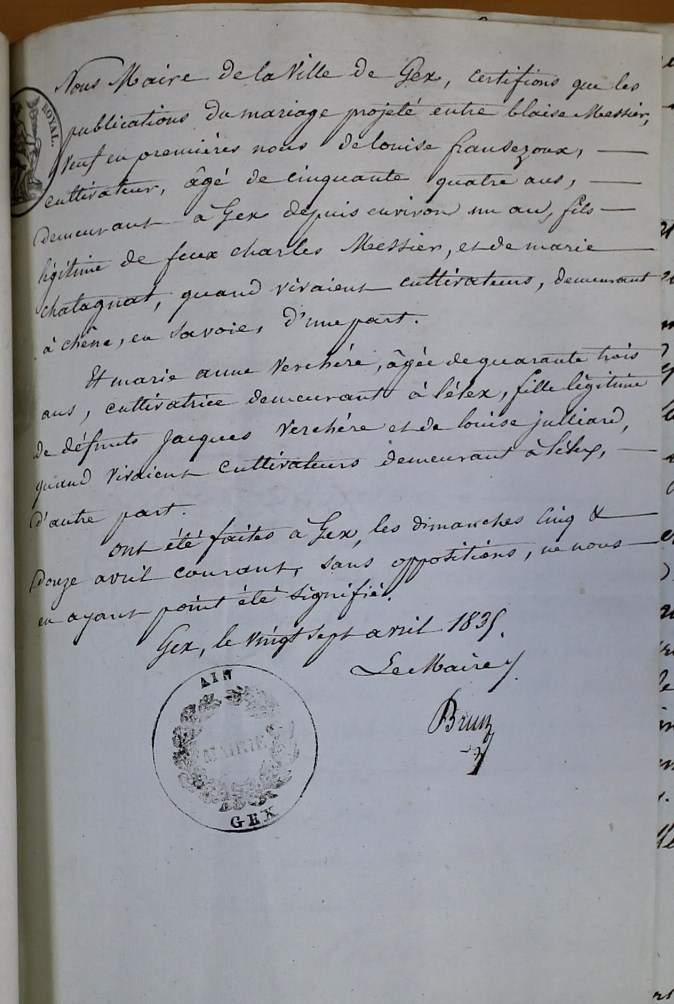 ROYAL.
Nous Maire de la Ville de Gex, certifions que les
publications du mariage projeté entre blaise Messier,
Veuf en premières nous de louise fransezoux, —
cultivateur, âgé de cinquante quatre ans, —
demeurant à Gex depuis environ un an, fils —
légitime de feux charles Messier, et de marie
chatagnat, quand vivaient cultivateurs, demeurant
à chêne, en savoie, d'une part.
Et marie anne Verchére, âgée de quarante trois
ans, cultivatrice demeurant à lélex, fille légitime
de défunts Jacques Verchére et de louise julliard,
quand vivaient cultivateurs demeurant à lélex, —
d'autre part.
ont été faites à Gex, les dimanches cinq &
Douze avril courant, sans oppositions, ne nous
en ayant point été signifié.
Gex, le vingt sept avril 1835.
Le Maire
AIN
MAIRIE
GEX